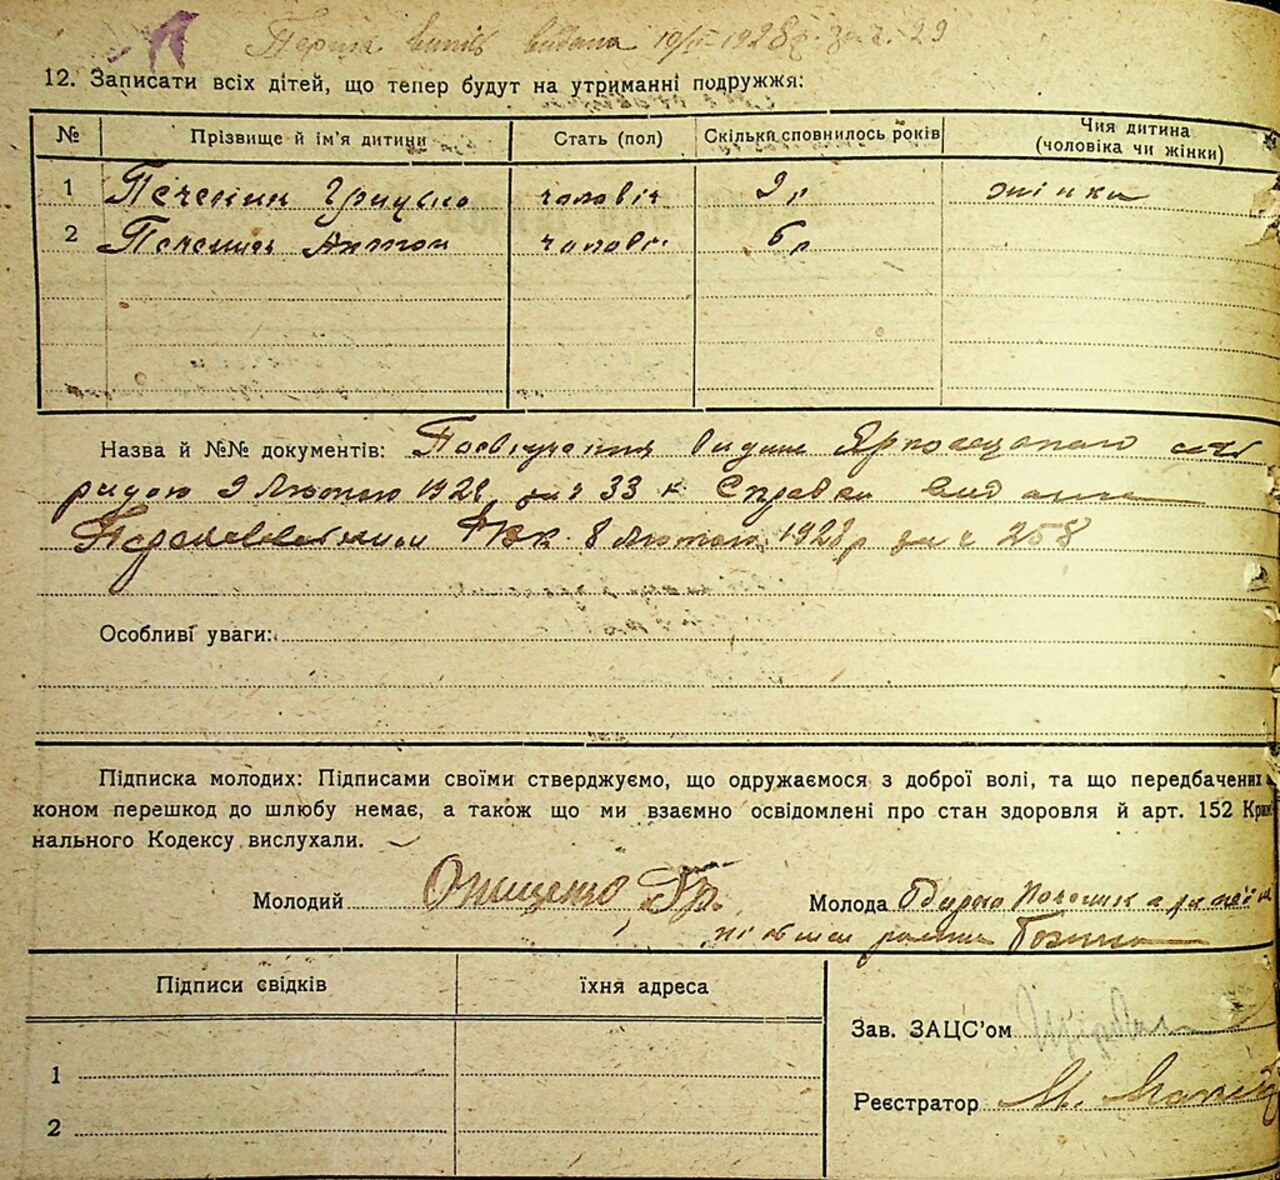 Перша випись видана 19/II 1928 р. за ч. 29
12. Записати всіх дітей, що тепер будут на утриманні подружжя:
№ Прізвище й ім'я дитини Стать (пол) Скільки сповнилось років Чия дитина (чоловіка чи жінки)
1 Печеник Грицько чоловіч 9 р жінки
2 Печеник Антон чоловіч 6 р
Назва й №№ документів: Посвідчення видане сіль
радою 9 Лютого 1928 за ч 33 Справка видана
8 Лютого 1928 р за ч 258
Особливі уваги:
Підписка молодих: Підписами своїми стверджуємо, що одружаємося з доброї волі, та що передбачених
коном перешкод до шлюбу немає, а також що ми взаємно освідомлені про стан здоровля й арт. 152 Крим
нального Кодексу вислухали.
Молодий Онищенко Гр. Молода Одарка Печеник а за неї
Підписи свідків їхня адреса
Зав. ЗАЦС'ом
1
Реєстратор М.
2